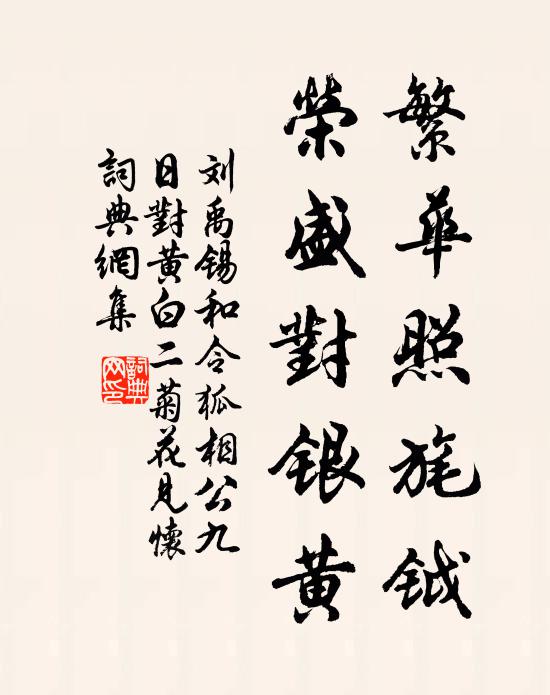 繁華照旄鉞
榮盛對銀黃
刘禹锡和令狐相公九
日對黄白二菊花見懷
詞典網集
詞典网印